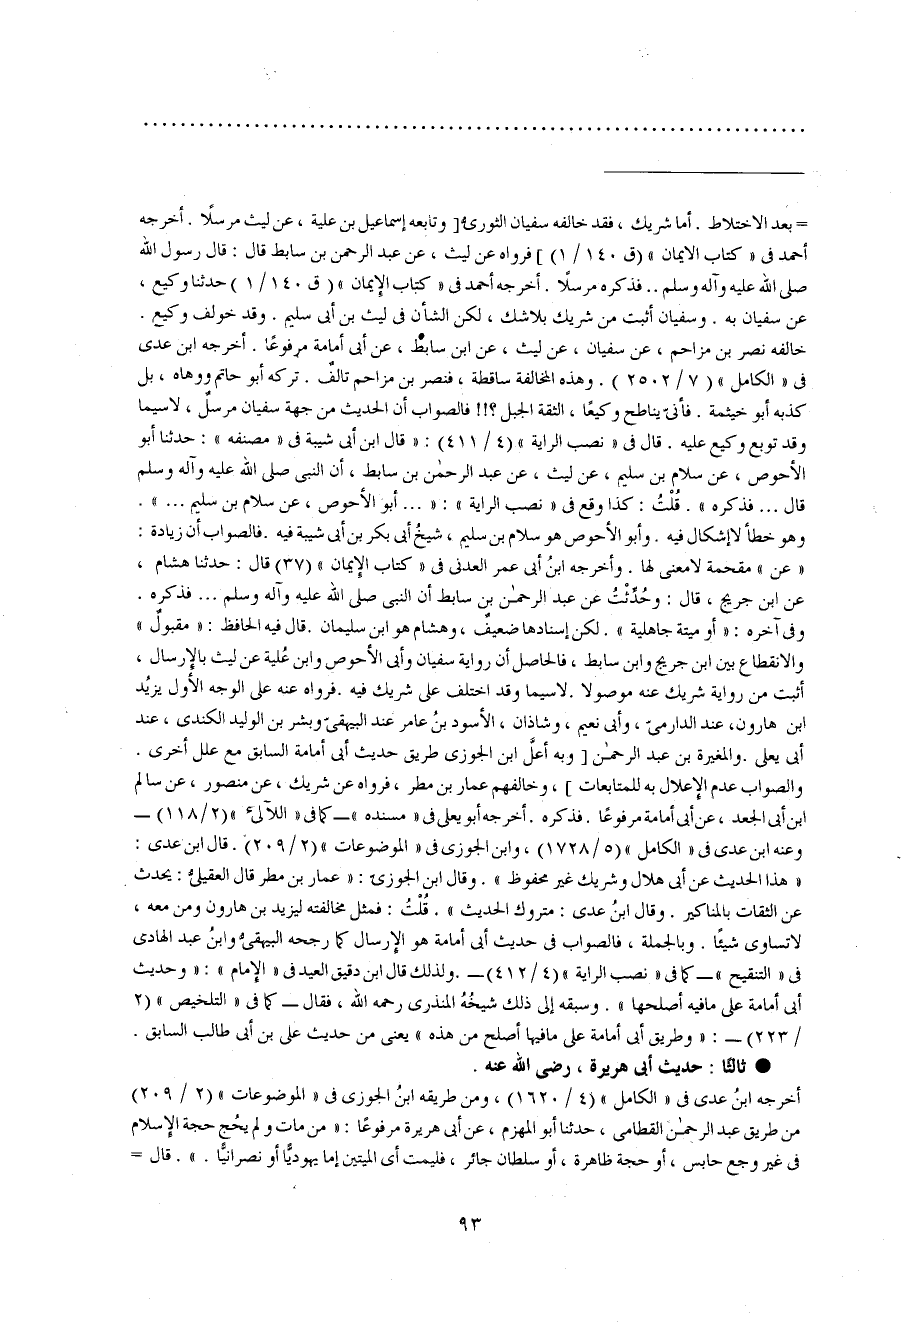 = بعد الاختلاط . أما شريك ، فقد خالفه سفيان الثورىُّ [ وتابعه إسماعيل بن علية ، عن ليث مرسلًا . أخرجه
أحمد فى « كتاب الايمان » (ق ١٤٠ / ١) ] فرواه عن ليث ، عن عبد الرحمن بن سابط قال : قال رسول الله
صلى الله عليه وآله وسلم .. فذكره مرسلًا . أخرجه أحمد فى « كتاب الإيمان » ( ق ١٤٠ / ١ ) حدثنا وكيع ،
عن سفيان به . وسفيان أثبت من شريك بلاشك ، لكن الشأن فى ليث بن أبى سليم . وقد خولف وكيع .
خالفه نصر بن مزاحم ، عن سفيان ، عن ليث ، عن ابن سابط ، عن أبى أمامة مرفوعًا . أخرجه ابن عدى
فى « الكامل » ( ٧ / ٢٥٠٢ ) . وهذه المخالفة ساقطة ، فنصر بن مزاحم تالفٌ . تركه أبو حاتم ووهاه ، بل
كذبه أبو خيثمة . فأنىّ يناطح وكيعًا ، الثقة الجبل ؟!! فالصواب أن الحديث من جهة سفيان مرسلٌ ، لاسيما
وقد توبع وكيع عليه . قال فى « نصب الراية » (٤ / ٤١١) : « قال ابن أبى شيبة فى « مصنفه » : حدثنا أبو
الأحوص ، عن سلام بن سليم ، عن ليث ، عن عبد الرحمٰن بن سابط ، أن النبى صلى الله عليه وآله وسلم
قال ... فذكره » . قُلْتُ : كذا وقع فى « نصب الراية » : « ... أبو الأحوص ، عن سلام بن سليم ... » .
وهو خطأ لاإشكال فيه . وأبو الأحوص هو سلام بن سليم ، شيخُ أبى بكر بن أبى شيبة فيه . فالصواب أن زيادة :
« عن » مقحمة لامعنى لها . وأخرجه ابنُ أبى عمر العدنى فى « كتاب الإيمان » (٣٧) قال : حدثنا هشام ،
عن ابن جريج ، قال : وحُدِّثْتُ عن عبد الرحمٰن بن سابط أن النبى صلى الله عليه وآله وسلم ... فذكره .
وفى آخره : « أو ميتة جاهلية » . لكن إسنادها ضعيفٌ ، وهشام هو ابن سليمان . قال فيه الحافظ : « مقبولٌ »
والانقطاع بين ابن جريج وابن سابط ، فالحاصل أن رواية سفيان وأبى الأحوص وابن عُلية عن ليث بالإرسال ،
أثبت من رواية شريك عنه موصولا . لاسيما وقد اختلف على شريك فيه . فرواه عنه على الوجه الأول يزيُد
ابن هارون، عند الدارمىّ ، وأبى نعيم ، وشاذان ، الأسود بنُ عامر عند البيهقىّ وبشر بن الوليد الكندى ، عند
أبى يعلى . والمغيرة بن عبد الرحمٰن [ وبه أعلَّ ابن الجوزى طريق حديث أبى أمامة السابق مع علل أخرى .
والصواب عدم الإعلال به للمتابعات ] ، وخالفهم عمار بن مطر ، فرواه عن شريك ، عن منصور ، عن سالم
ابن أبى الجعد ، عن أبى أمامة مرفوعًا . فذكره . أخرجه أبو يعلى فى « مسنده » ــ كما فى « اللآلىء » (٢/ ١١٨) ــ
وعنه ابن عدى فى « الكامل » (٥/ ١٧٢٨) ، وابن الجوزى فى « الموضوعات » (٢ / ٢٠٩) . قال ابن عدى :
« هذا الحديث عن أبى هلال وشريك غير محفوظ » . وقال ابن الجوزىّ : « عمار بن مطر قال العقيلىُّ : يحدث
عن الثقات بالمناكير . وقال ابنُ عدى : متروك الحديث » . قُلْتُ : فمثل مخالفته ليزيد بن هارون ومن معه ،
لاتساوى شيئًا . وبالجملة ، فالصواب فى حديث أبى أمامة هو الإرسال كما رجحه البيهقىُّ وابنُ عبد الهادى
فى « التنقيح » ــ كما فى « نصب الراية » (٤ / ٤١٢) ــ . ولذلك قال ابن دقيق العيد فى « الإمام » : « وحديث
أبى أمامة على مافيه أصلحها » . وسبقه إلى ذلك شيخُهُ المنذرى رحمه الله ، فقال ــ كما فى « التلخيص » (٢
/ ٢٢٣) ــ : « وطريق أبى أمامة على مافيها أصلح من هذه » يعنى من حديث على بن أبى طالب السابق .
● ثالثًا : حديث أبى هريرة ، رضى الله عنه .
أخرجه ابنُ عدى فى « الكامل » (٤ / ١٦٢٠) ، ومن طريقه ابنُ الجوزى فى « الموضوعات » (٢ / ٢٠٩)
من طريق عبد الرحمٰن القطامى ، حدثنا أبو المهزم ، عن أبى هريرة مرفوعًا : « من مات و لم يحُج حجة الإسلام
فى غير وجع حابس ، أو حجة ظاهرة ، أو سلطان جائر ، فليمت أى الميتين إما يهوديًّا أو نصرانيًّا . » . قال =
٩٣